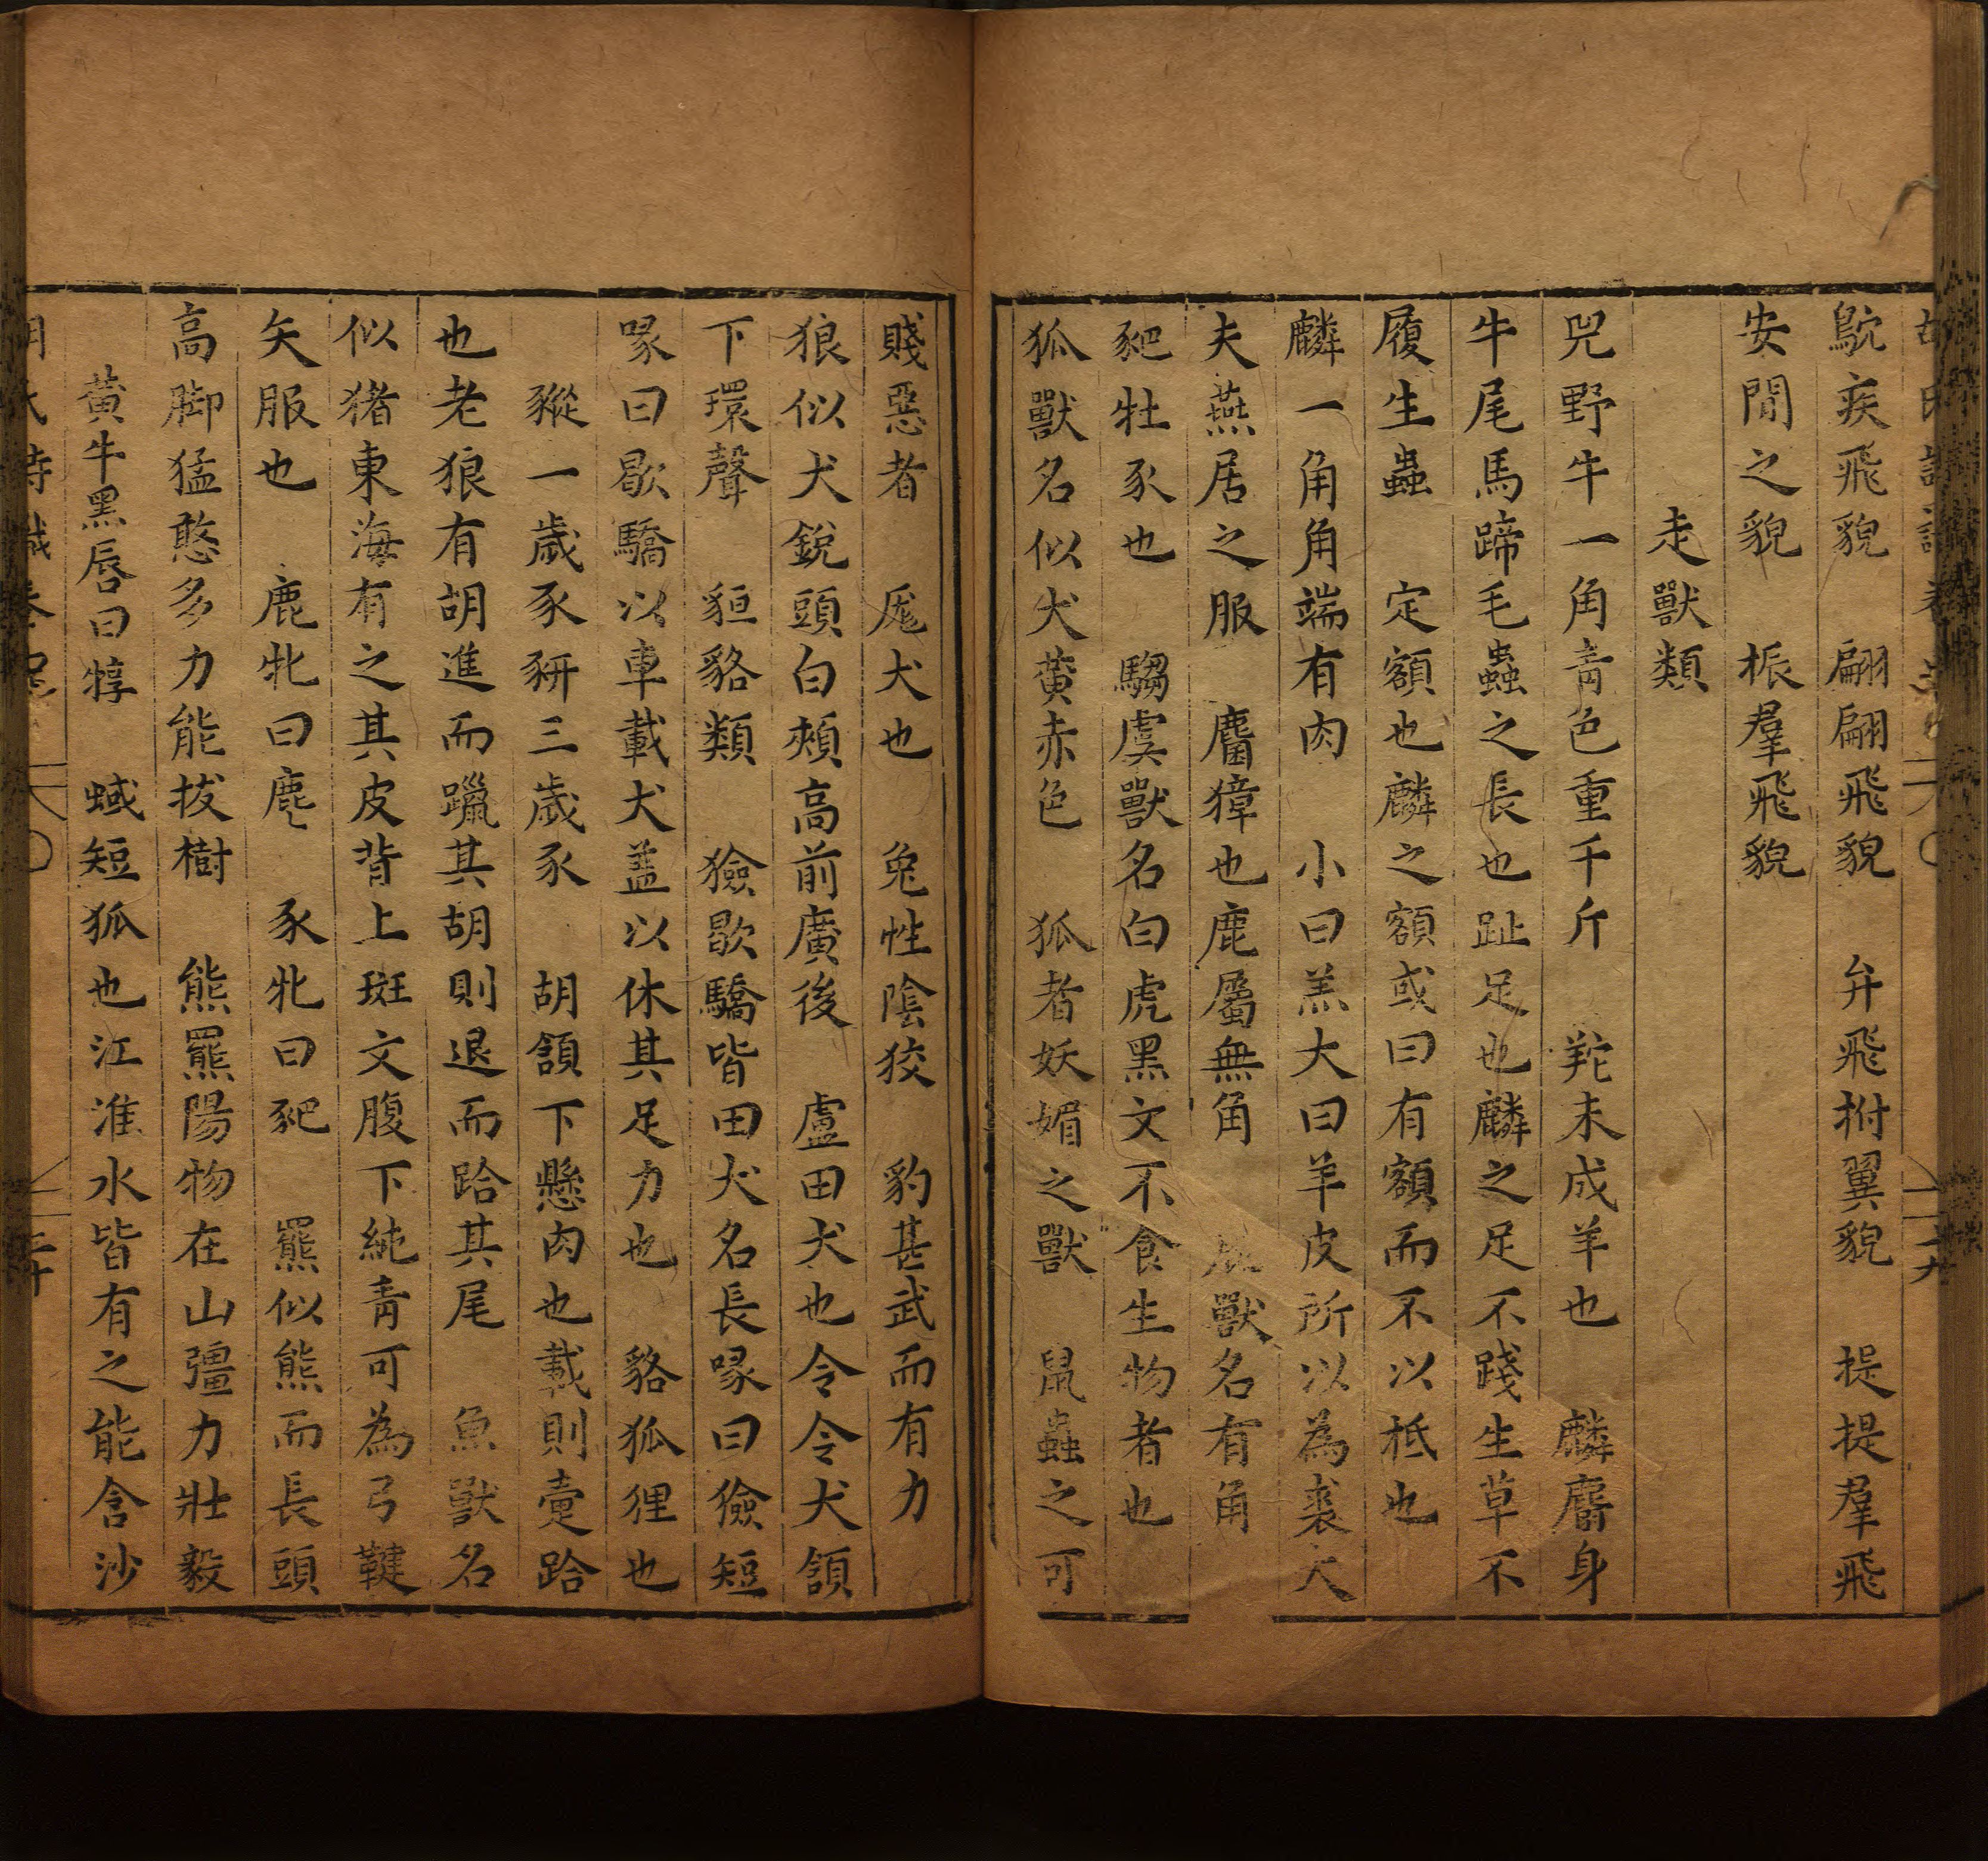 鴥疾飛貌　翩翩飛貌　弁飛拊翼貌　提提羣飛
安閒之貌　振羣飛貌
走獸類
兕野牛一角青色重千斤　羜未成羊也　麟麕身
牛尾馬蹄毛蟲之長也趾足也麟之足不踐生草不
履生蟲　定額也麟之額或曰有額而不以抵也
麟一角角端有肉　小曰羔大曰羊皮所以為裘大
夫燕居之服　麕獐也鹿屬無角　鹿獸名有角
豝牡豕也　騶虞獸名白虎黑文不食生物者也
狐獸名似犬黃赤色　狐者妖媚之獸　鼠蟲之可
賤惡者　尨犬也　兔性陰狡　豹甚武而有力
狼似犬銳頭白頰高前廣後　盧田犬也令令犬頷
下環聲　貆貉類　獫歇驕皆田犬名長喙曰獫短
喙曰歇驕以車載犬盖以休其足力也　貉狐狸也
豵一歲豕豜三歲豕　胡頷下懸肉也載則疐跲
也老狼有胡進而躐其胡則退而跲其尾　魚獸名
似豬東海有之其皮背上斑文腹下純青可為弓鞬
矢服也　鹿牝曰麀　豕牝曰豝　羆似熊而長頭
高脚猛憨多力能拔樹　熊羆陽物在山彊力壯毅
黃牛黑唇曰犉　蜮短狐也江淮水皆有之能含沙